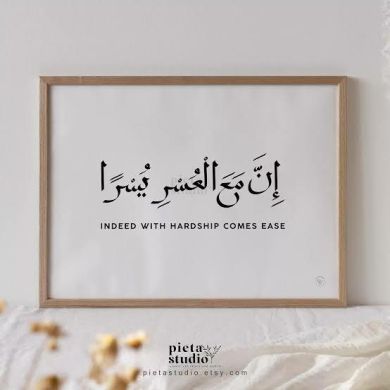 إِنَّ مَعَ الْعُسْرِ يُسْرًا
INDEED WITH HARDSHIP COMES EASE
pieta
studio
pietastudio.etsy.com